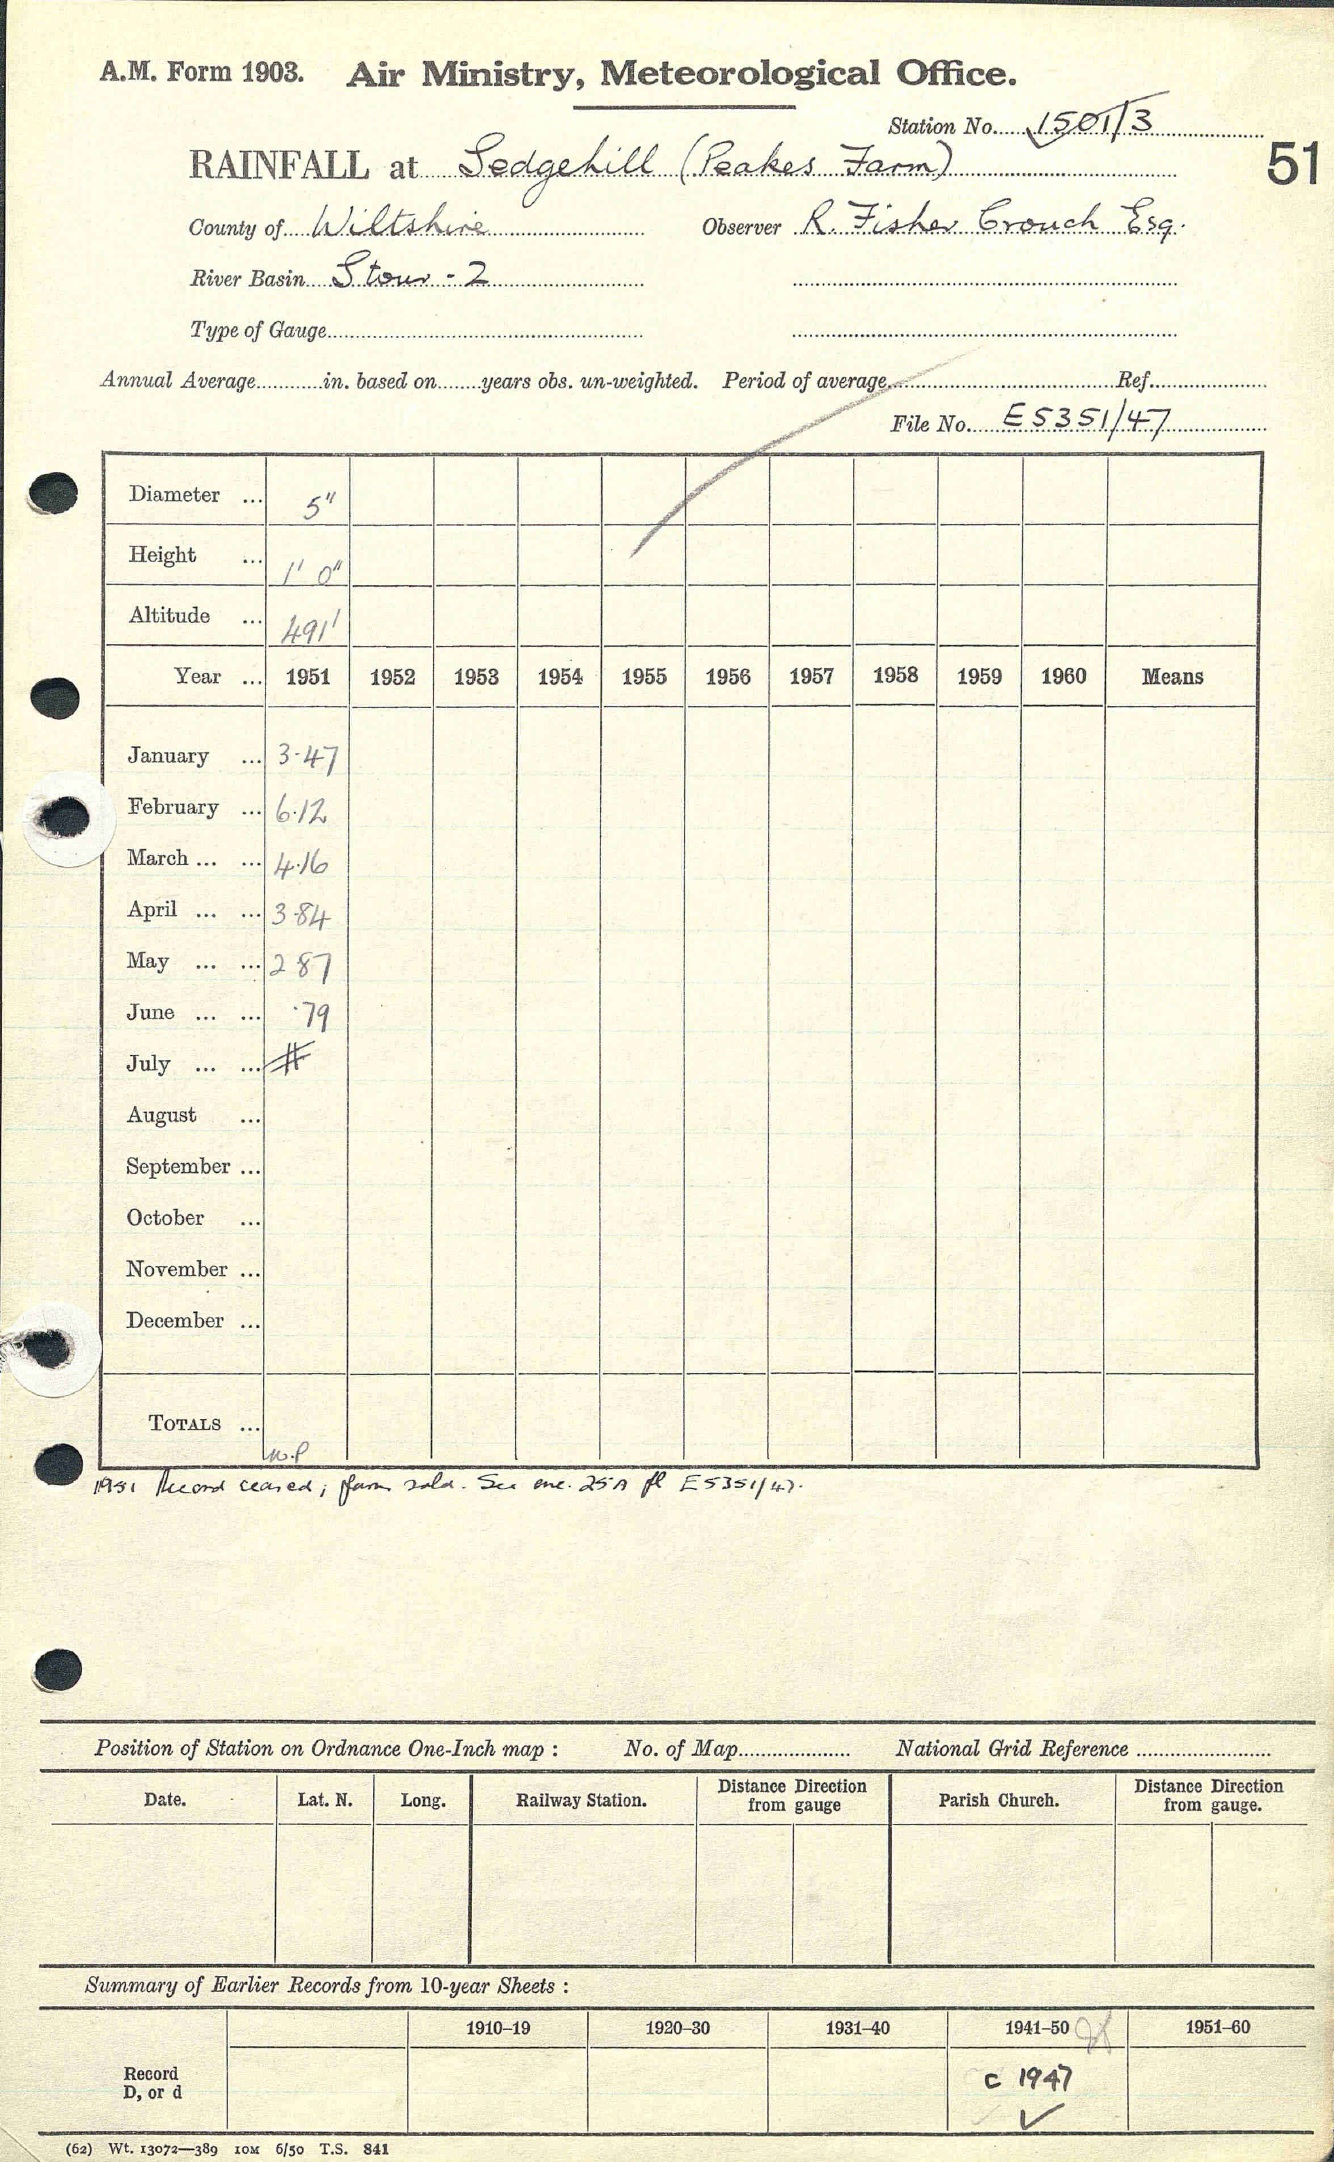 A.M. Form 1903. Air Ministry, Meteorological Office.
Station No. 1501/3
51
RAINFALL at Sedgehill (Peakes Farm)
County of Wiltshire Observer R. Fisher Crouch Esq.
River Basin Stour - 2
Type of Gauge
Annual Average in. based on years obs. un-weighted. Period of average Ref.
File No. E5351/47
Diameter ... 5"
Height ... 1' 0"
Altitude ... 491'
Year ... 1951 1952 1953 1954 1955 1956 1957 1958 1959 1960 Means
January ... 3·47
February ... 6·12
March ... ... 4·16
April ... ... 3·84
May ... ... 2 87
June ... ... ·79
July ... ... #
August ...
September ...
October ...
November ...
December ...
TOTALS ...
n.p
1951 Record ceased; farm sold. See enc. 25A fl E5351/47.
Position of Station on Ordnance One-Inch map : No. of Map National Grid Reference
Date. Lat. N. Long. Railway Station. Distance Direction from gauge Parish Church. Distance Direction from gauge.
Summary of Earlier Records from 10-year Sheets :
1910–19 1920–30 1931–40 1941–50 1951–60
Record D, or d c 1947
✓
(62) Wt. 13072—389 10M 6/50 T.S. 841